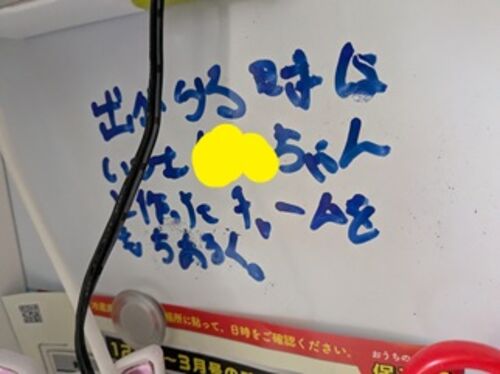 出かける時は
いつも ちゃん
と作ったチャームを
もちあるく。
場所に貼って、日時をご確認ください。
おうちの
～3月号の